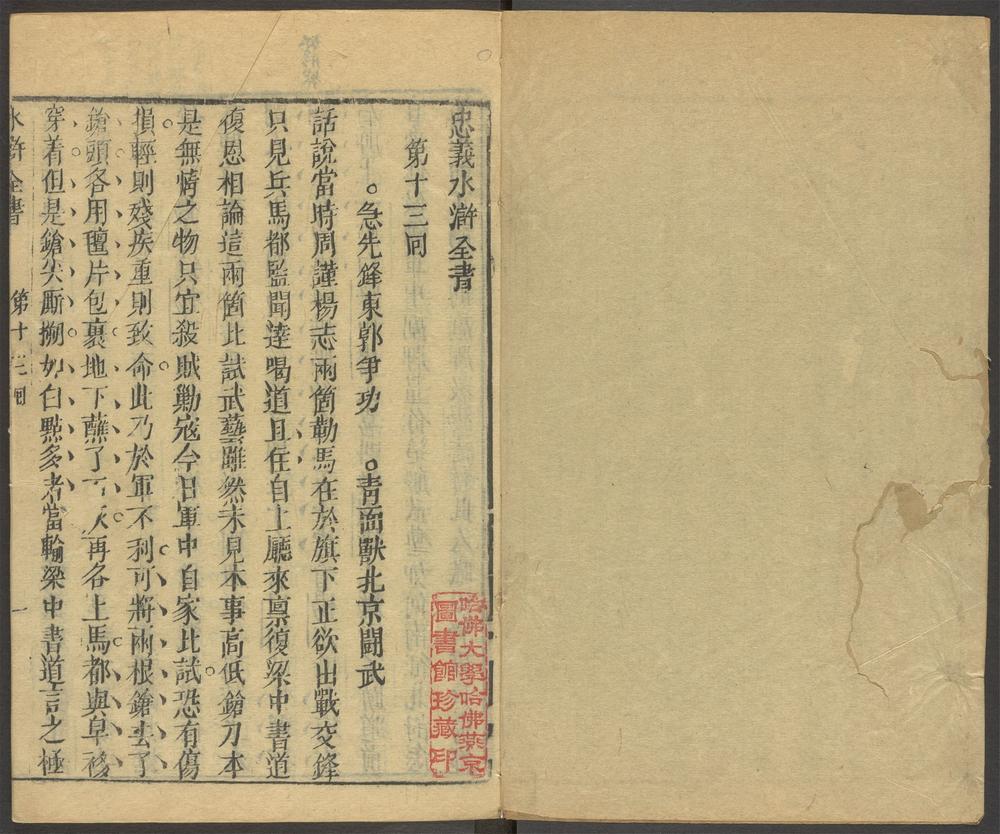 忠義水滸全書
第十三回
急先鋒東郭爭功　青面獸北京鬪武
話說當時周謹楊志兩箇勒馬在於旗下正欲出戰交鋒
只見兵馬都監聞達喝道且住自上廳來禀復梁中書道
復恩相論這兩箇比試武藝雖然未見本事高低鎗刀本
是無情之物只宜殺賊勦寇今日軍中自家比試恐有傷
損輕則殘疾重則致命此乃於軍不利可將兩根鎗去了
鎗頭各用氊片包裹地下蘸了石灰再各上馬都與皁衫
穿着但是鎗尖厮搠如白點多者當輸梁中書道言之極
水滸全書　第十三回　一
哈佛大學哈佛燕京
圖書館珍藏印